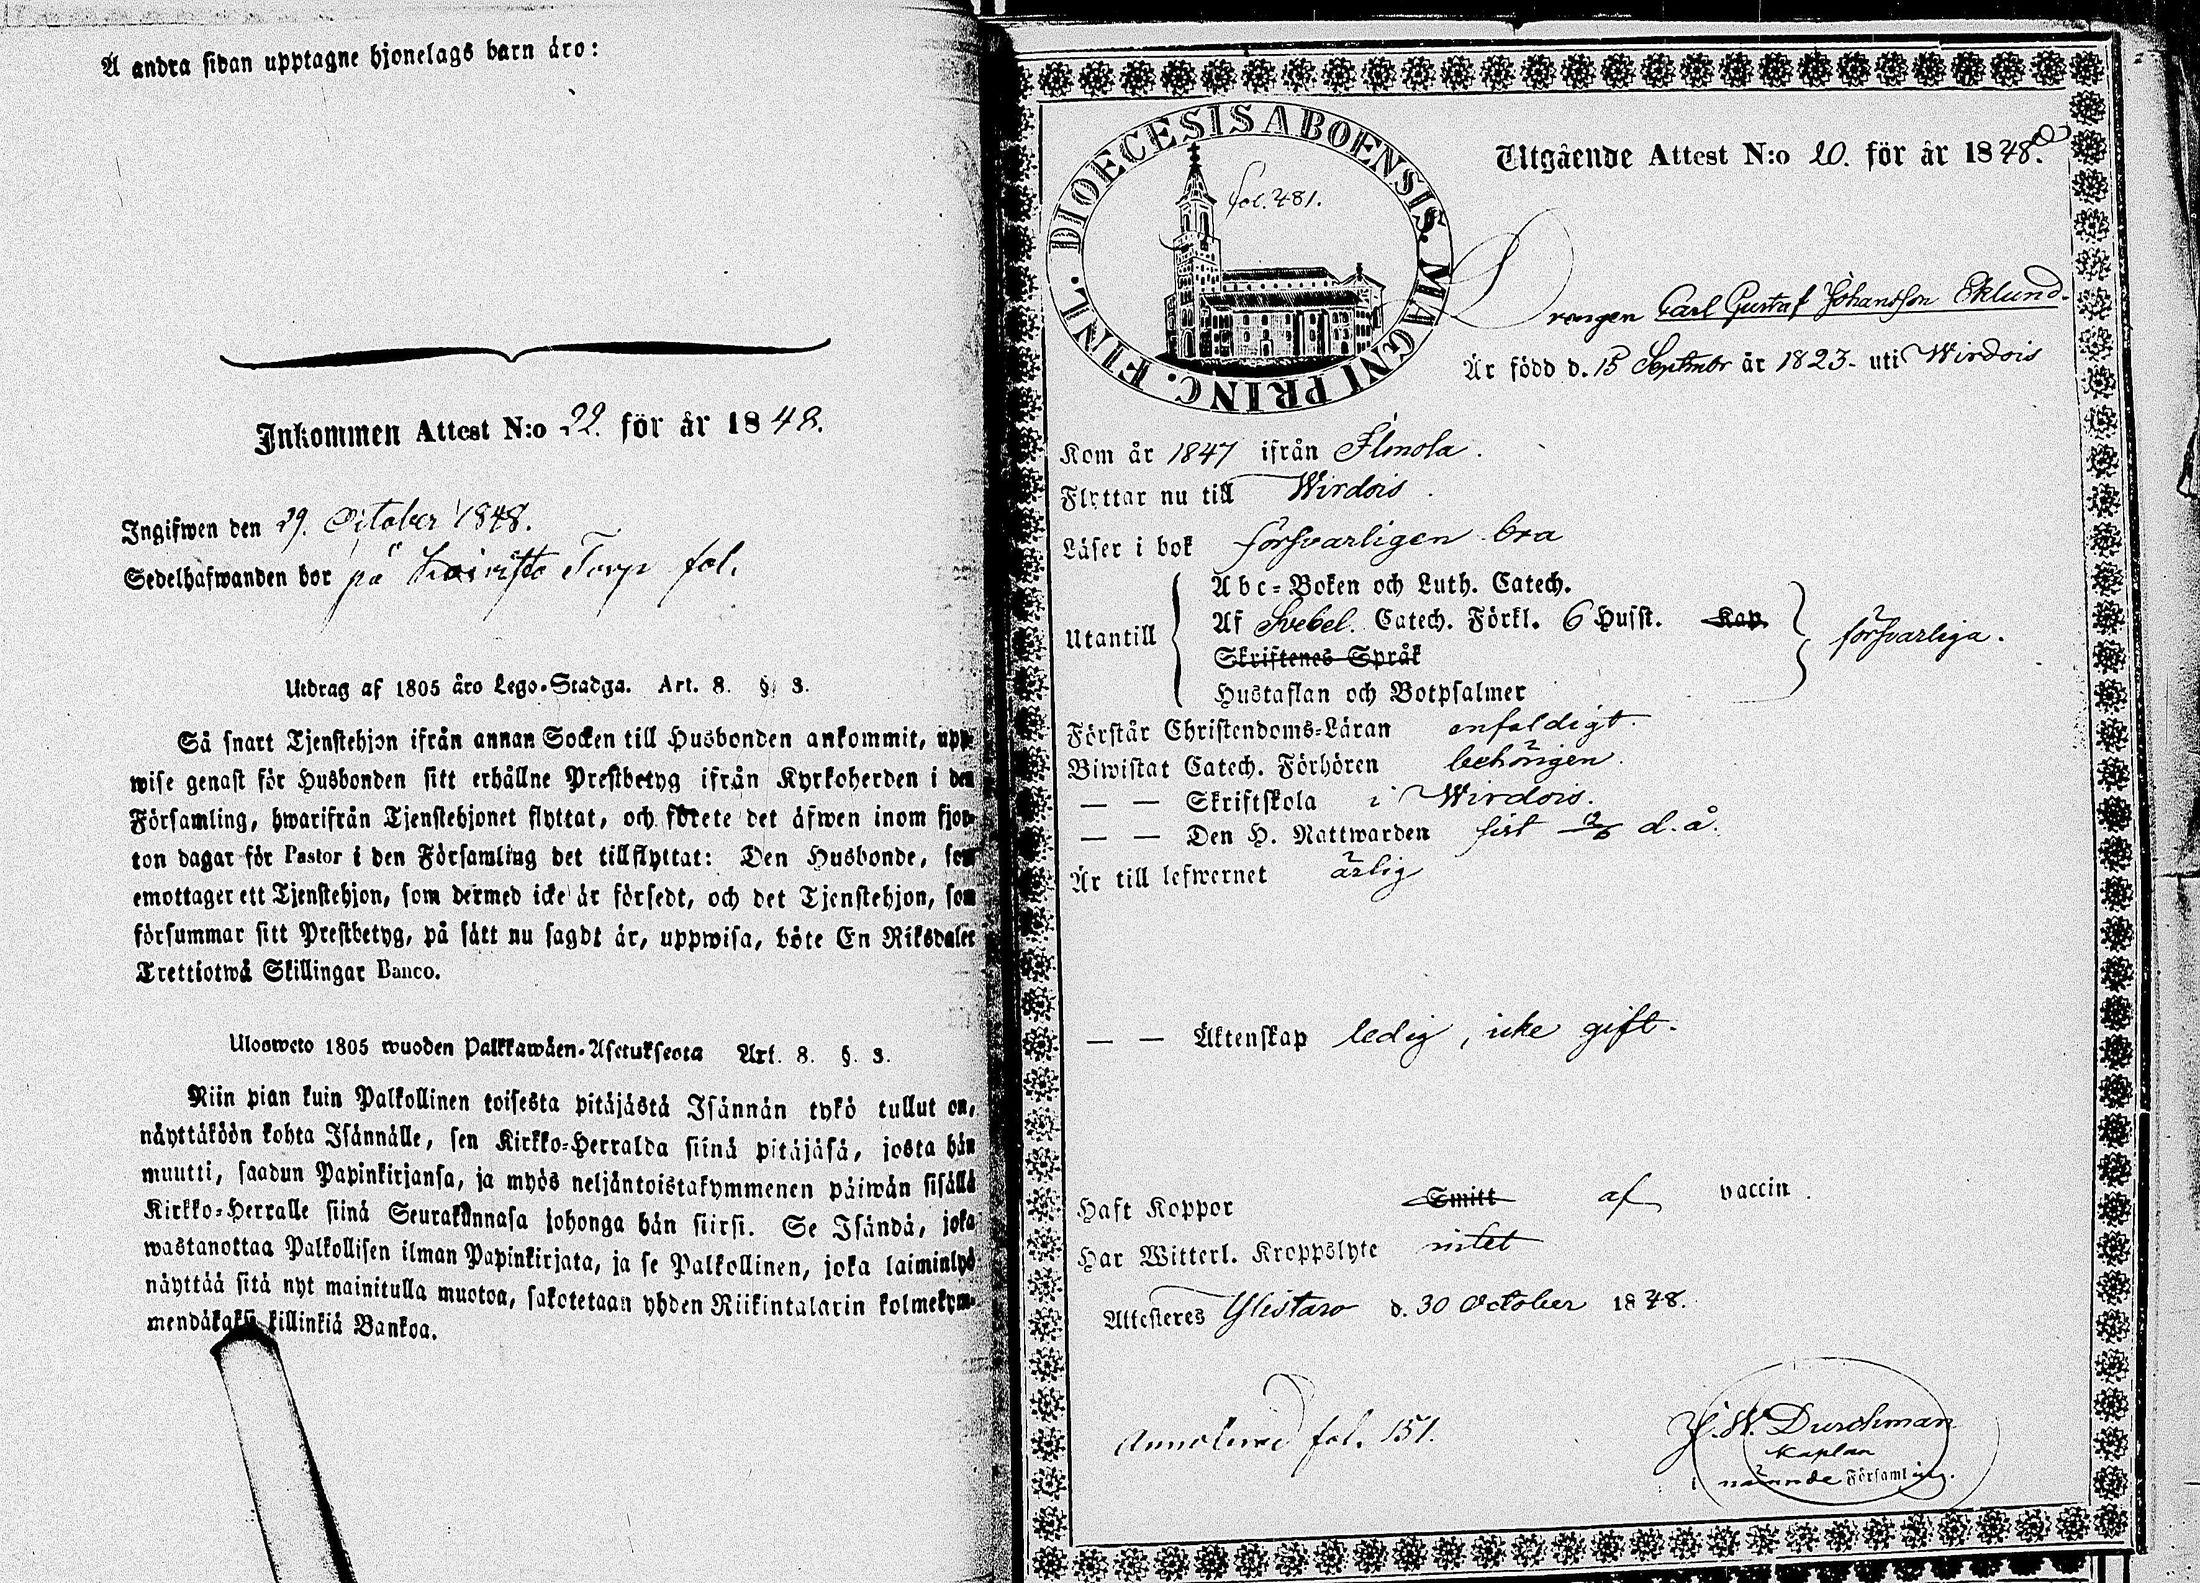 Å andra sidan upptagne hjonelags barn äro:
Inkommen Attest N:o 22. för år 1848.
Ingifwen den 29. October 1848.
Sedelhafwanden bor på Torp fol.
Utdrag af 1805 års Lego-Stadga. Art. 8. §. 3.
Så snart Tjenstehjon ifrån annan Socken till Husbonden ankommit, upp-
wise genast för Husbonden sitt erhållne Prestbetyg ifrån Kyrkoherden i den
Församling, hwarifrån Tjenstehjonet flyttat, och förete det äfwen inom fjor-
ton dagar för Pastor i den Församling det tillflyttat: Den Husbonde, som
emottager ett Tjenstehjon, som dermed icke är försedt, och det Tjenstehjon, som
försummar sitt Prestbetyg, på sätt nu sagdt är, uppwisa, böte En Riksdaler
Trettiotwå Skillingar Banco.
Ulosweto 1805 wuoden Palkkawäen-Asetuksesta Art. 8. §. 3.
Niin pian kuin Palkollinen toisesta pitäjästä Isännän tykö tullut on,
näyttäköön kohta Isännälle, sen Kirkko-Herralda siinä pitäjäsä, josta hän
muutti, saadun Papinkirjansa, ja myös neljäntoistakymmenen päiwän sisällä
Kirkko-Herralle siinä Seurakunnasa johonga hän siirsi. Se Isändä, joka
wastanottaa Palkollisen ilman Papinkirjata, ja se Palkollinen, joka laiminlyö
näyttää sitä nyt mainitulla muotoa, sakotetaan yhden Riikintalarin kolmekym-
mendäkaksi killinkiä Bankoa.
DIOECESIS ABOENSIS. MAGNI PRINC. FINL.
fol. 481.
Utgående Attest N:o 20. för år 1848.
Drengen Carl Gustaf Johansson Eklund.
Är född d. 15 September år 1823. uti Wirdois
Kom år 1847 ifrån Ilmola.
Flyttar nu till Wirdois.
Läser i bok försvarligen bra
Utantill
Abc-Boken och Luth. Catech.
Af Svebel. Catech. Förkl. 6 Husst. Kap.
Skriftenes Språk
Hustaflan och Botpsalmer
försvarliga.
Förstår Christendoms-Läran enfaldigt.
Biwistat Catech. Förhören behörigen.
— — Skriftskola i Wirdois.
— — Den H. Nattwarden sist d. å.
Är till lefwernet ärlig
— — Äktenskap ledig, icke gift.
Haft Koppor Smitt af vaccin.
Har Witterl. Kroppslyte intet
Attesteres Ylistaro d. 30 October 1848.
Annoterad fol. 151.
J. W. Durchman
Kaplan
i nämnde Församling.